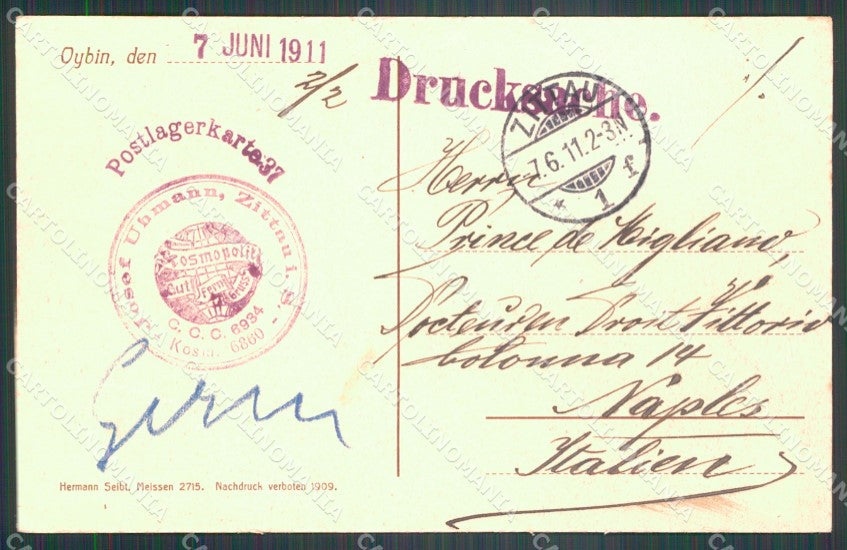 Oybin, den 7 JUNI 1911
2/2
Drucksache.
ZITTAU
7.6.11.2-3N.
* 1 f
Postlagerkarte 37
Josef Uhmann, Zittau i. S.
Kosmopolit
Gut Fern
C. C. C. 6934
Kosm. 6860
Herrn
Prince de Migliano,
Vittorio
Colonna 14
Naples
Italien
Hermann Seibt. Meissen 2715. Nachdruck verboten 1909.
CARTOLINOMANIA